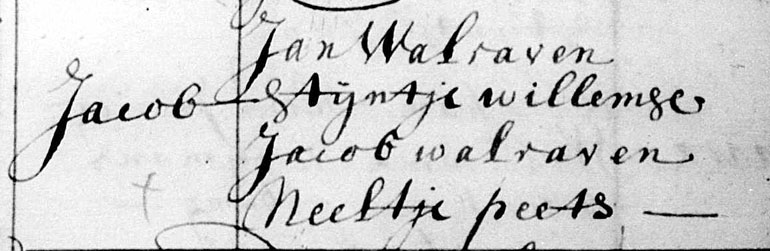 Jan Walraven
Jacob Styntje willemse
Jacob walraven
Neeltje peets